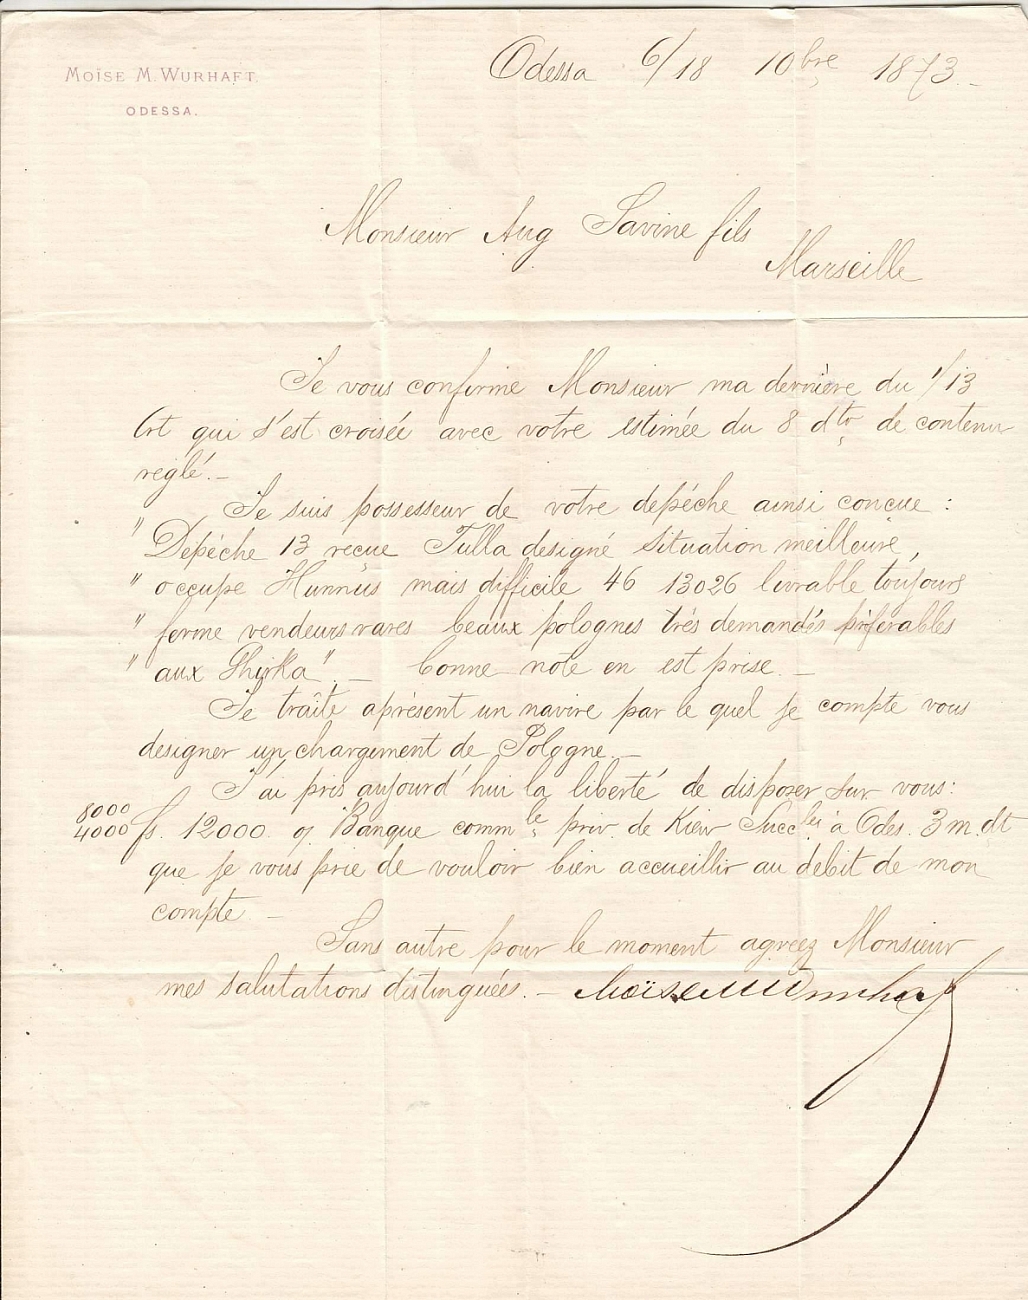 MOÏSE M. WURHAFT.
ODESSA.
Odessa 6/18 10bre 1873.-
Monsieur Aug Savine fils
Marseille
Je vous confirme Monsieur ma dernière du 1/13
Crt qui s'est croisée avec votre estimée du 8 dto de contenu
reglé.-
Je suis possesseur de votre depéche ainsi concue :
" Dépéche 13 recue Tulla designé situation meilleure,
" occupe Hunnus mais difficile 46 130 26 livrable toujours
" ferme vendeurs rares beaux polognes trés demandés préferables
" aux Ghirka".- bonne note en est prise.-
Je traite aprésent un navire par le quel je compte vous
designer un chargement de Pologne.-
J'ai pris aujourd'hui la liberté de disposer sur vous:
8000
4000 fs. 12000 o/ Banque commle priv. de Kiew Succles à Odes. 3 m. dt
que je vous prie de vouloir bien accueillir au debit de mon
compte.-
Sans autre pour le moment agreez Monsieur
mes salutations distinguées.- Moïse M Wurhaft